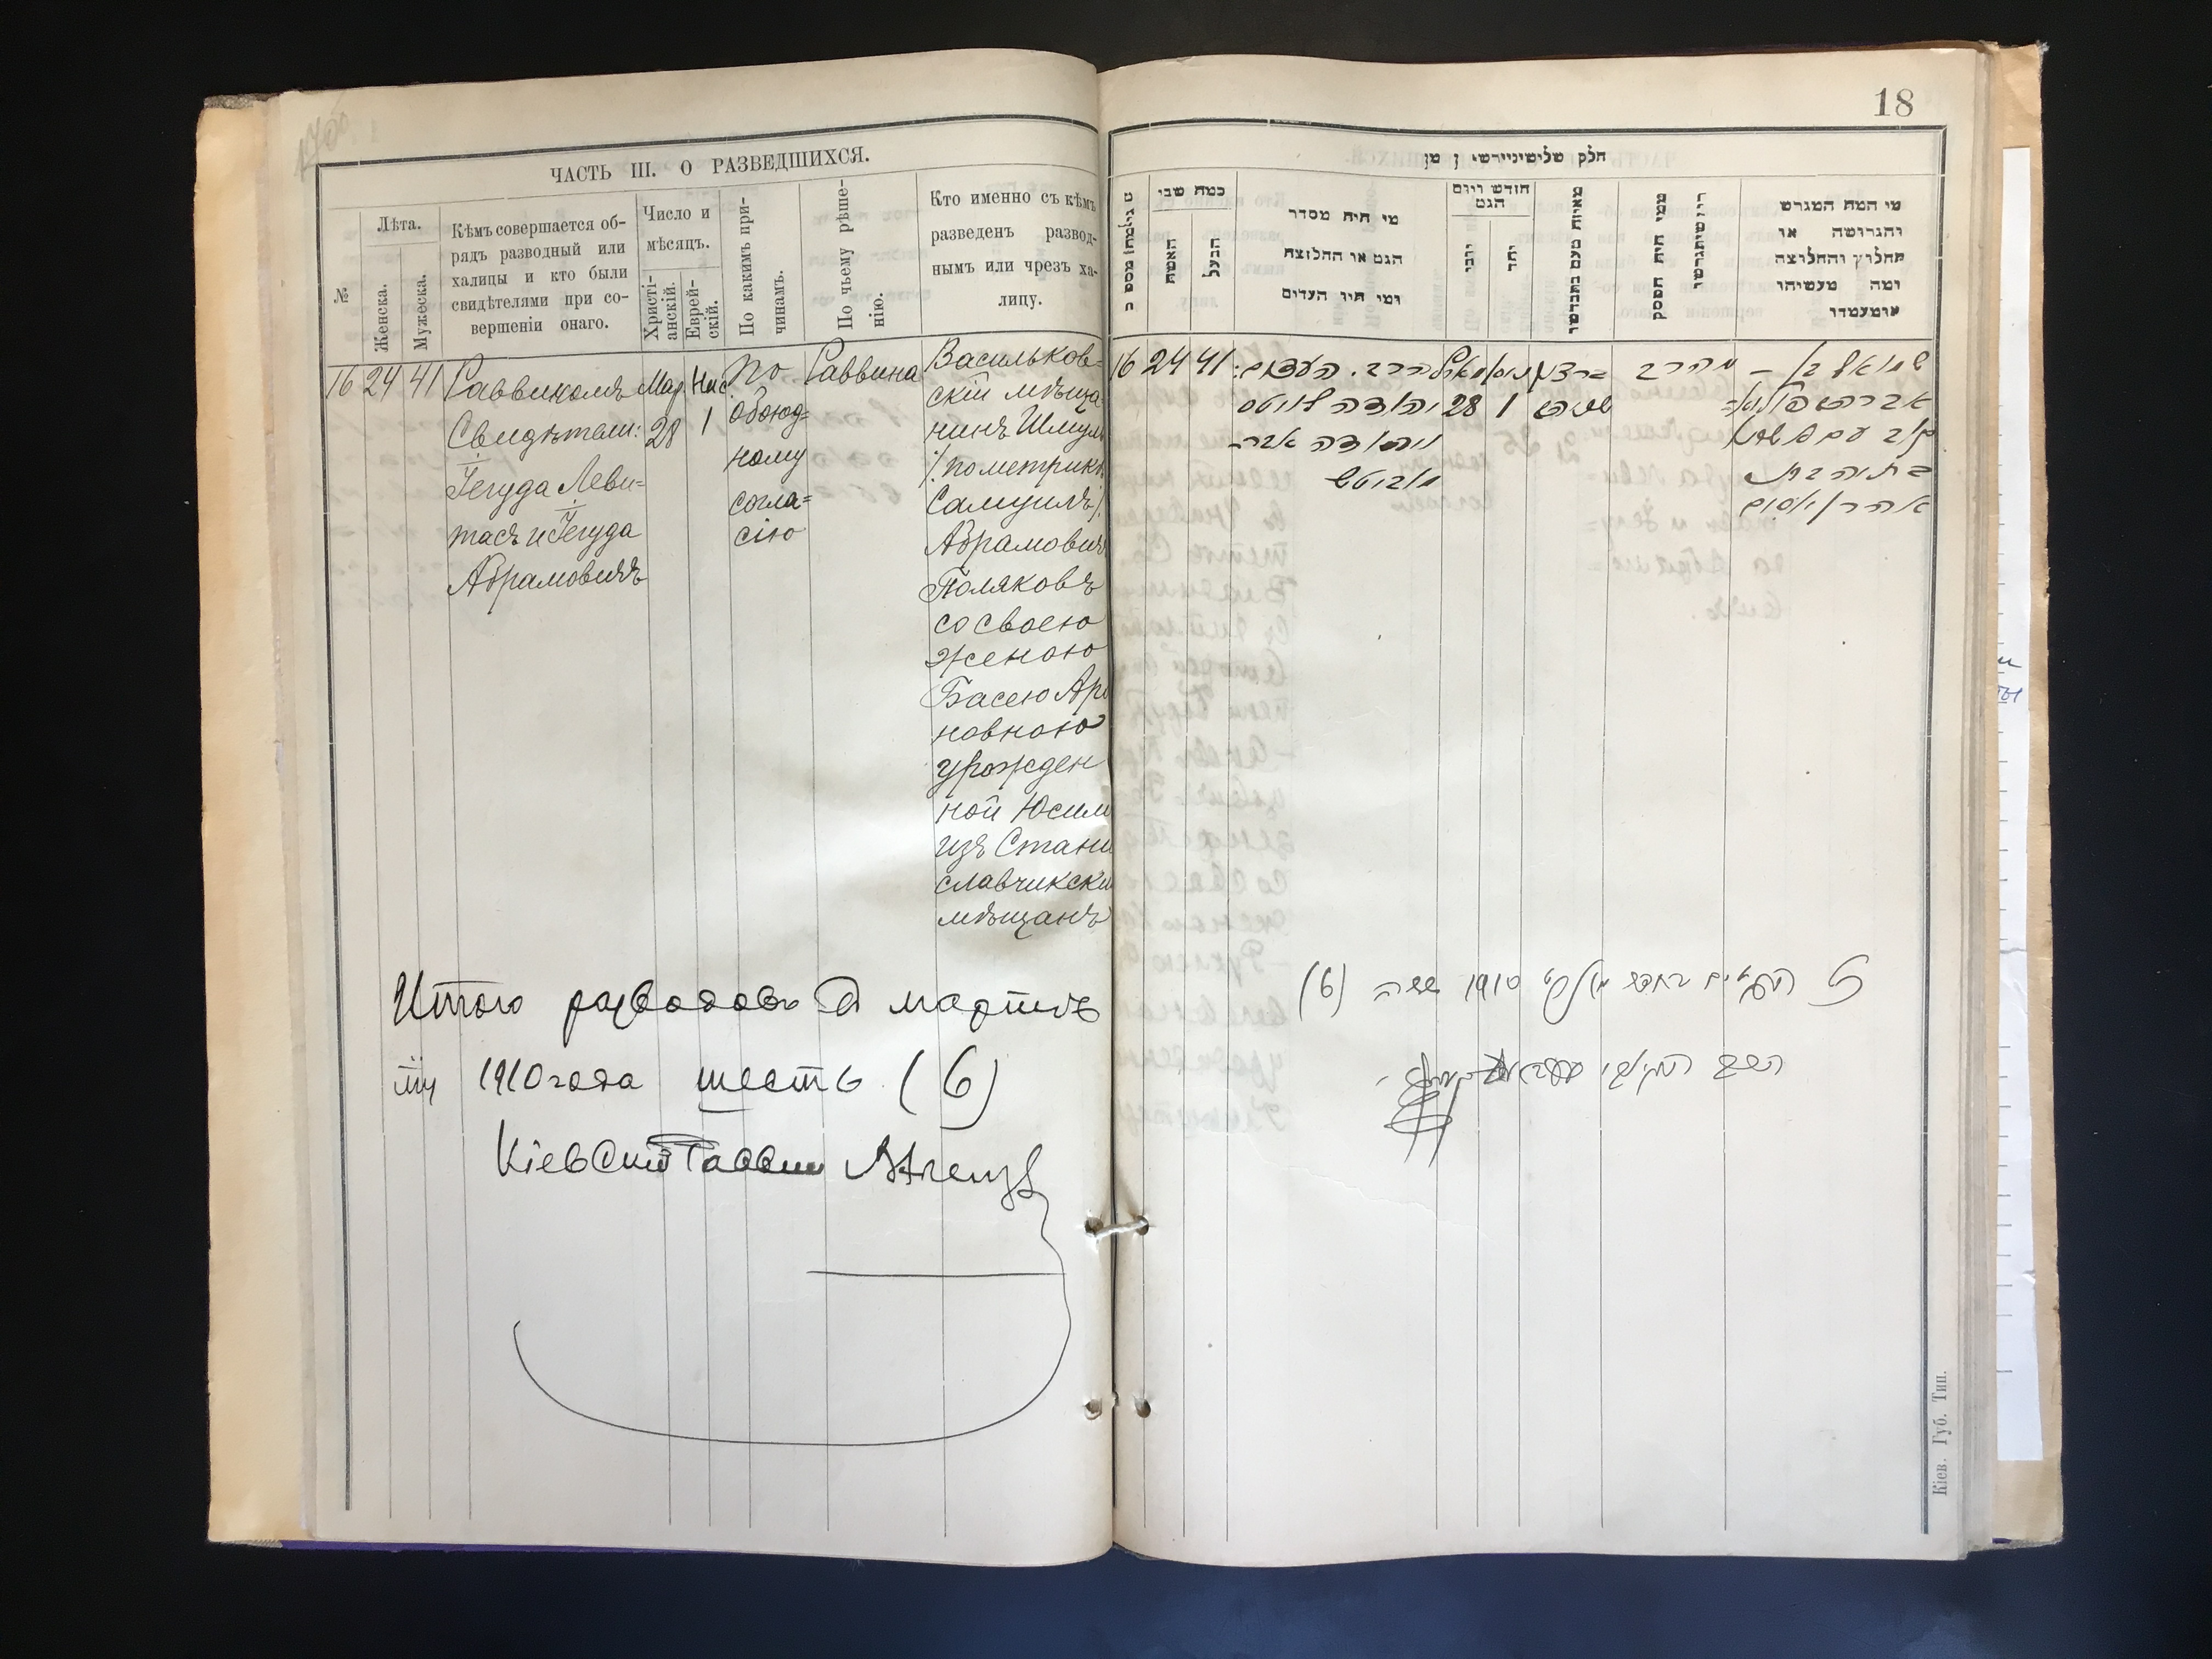 ЧАСТЬ III. О РАЗВЕДШИХСЯ.
№
Лѣта.
Женска.
Мужеска.
Кѣмъ совершается об-
рядъ разводный или
халицы и кто были
свидѣтелями при со-
вершеніи онаго.
Число и
мѣсяцъ.
Христі-
анскій.
Еврей-
скій.
По какимъ при-
чинамъ.
По чьему рѣше-
нію.
Кто именно съ кѣмъ
разведенъ развод-
нымъ или чрезъ ха-
лицу.
16
24
41
Раввиномъ
Свидѣтели:
Іегуда Леви-
тасъ и Іегуда
Абрамовичъ
Мар.
28
Нис.
1
По
обоюд=
ному
согла=
сію
Раввина
Васильков=
скій мѣща
нинъ Шмуль
/по метрикѣ
Самуилъ/.
Абрамовичъ
Поляковъ
со своею
женою
Басею Аро
новною
урожден
ной Юсим
изъ Стани
славчикски
мѣщанъ
Итого разводовъ въ мартѣ
мц 1910 года шесть (6)
Кіевскій Раввинъ
18
חלק שלישי
כמה שני
האשה
הבעל
מי היה מסדר
הגט או החלוצה
ומי היו העדים
חודש ויום
הגט
יהד
ממי היה הפסק
מי המה המגרש
והגרושה או
החלוץ והחלוצה
ומה מעשיהו
ומעמדו
16
24
41
הרב. העדים:
יהודה לוויטס
ויהודה אבר-
אוויטש
28
1
ברצון
שניהם
מהרב
שמואל בן –
אברהם פולי
קוב עם אשתו
בתיה בת
אהרן יוסים
1910 ששה (6)
הרב
Кіев. Губ. Тип.